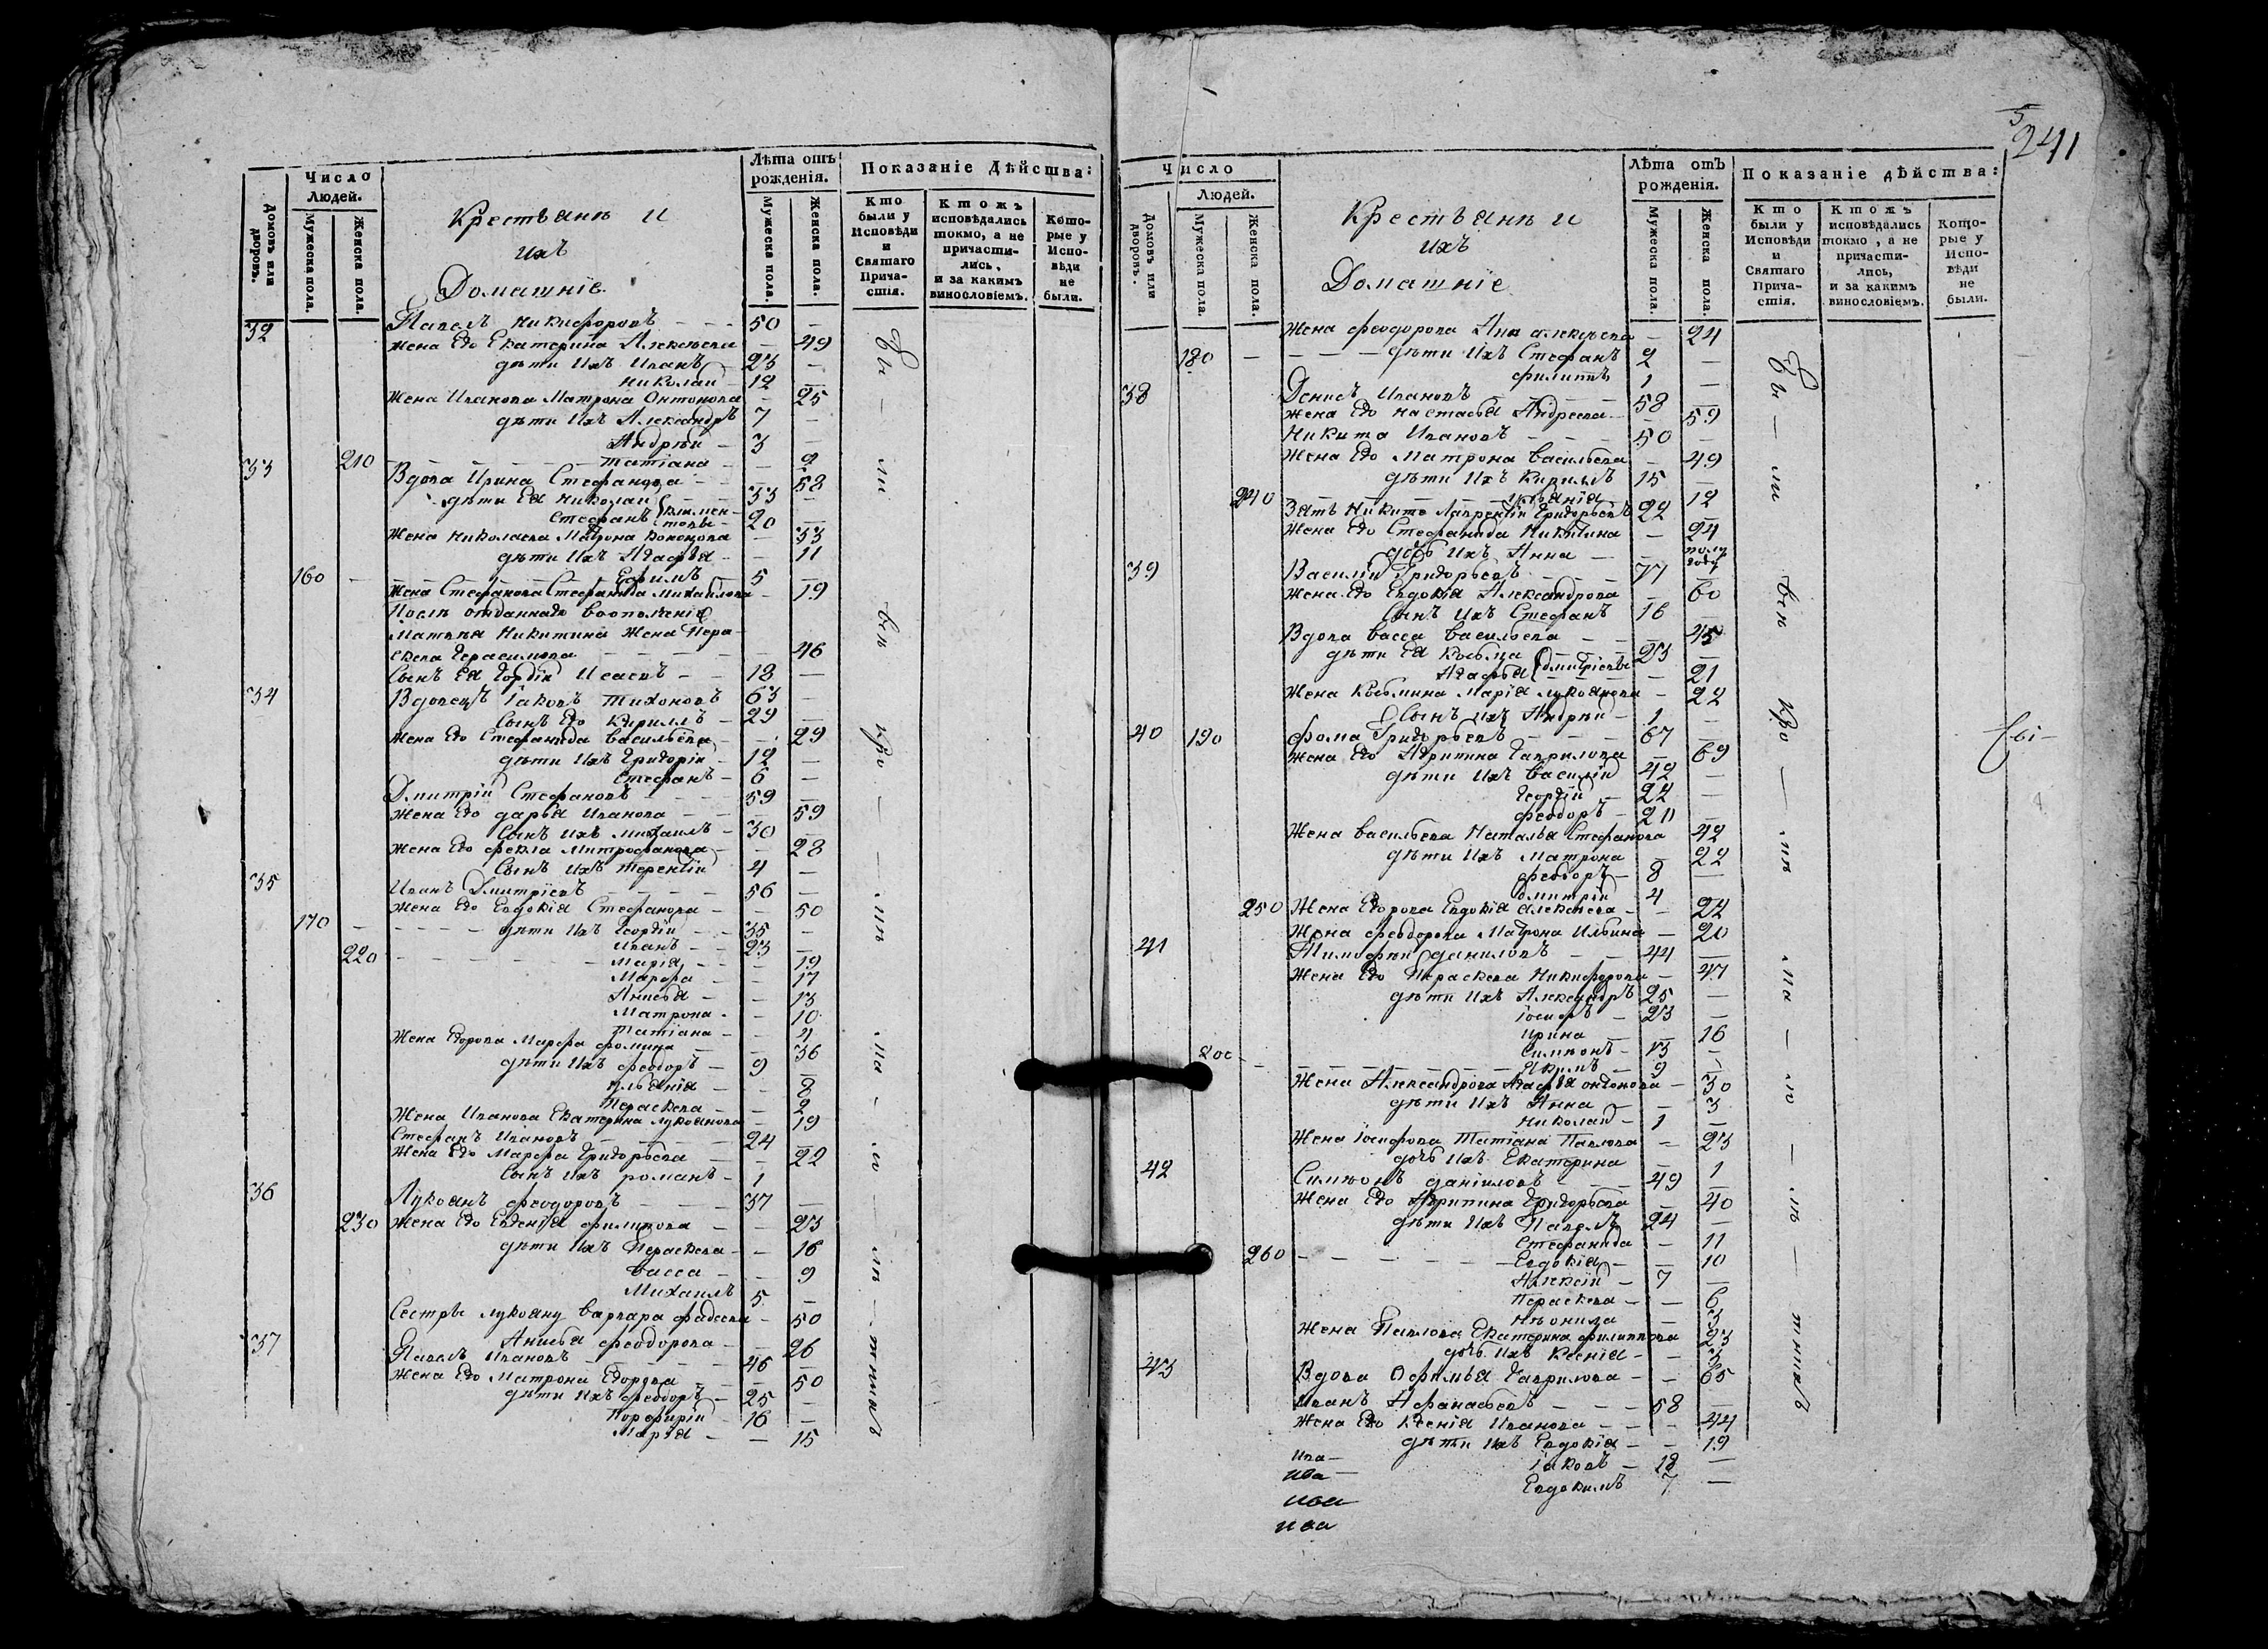 5
241
Число
Людей.
Домовъ или дворовъ.
Мужеска пола.
Женска пола.
Крестьянѣ и
ихъ
Домашніе
Лѣта отъ рожденія.
Мужеска пола.
Женска пола.
Показаніе дѣйства:
Кто были у Исповѣди и Святаго Причастія.
Ктожъ исповѣдались токмо, а не причастились, и за какимъ винословіемъ.
Которые у Исповѣди не были.
32 Павелъ Никифоровъ - - - 50 -
жена Его Екатерина Алексѣева - 49
дѣти Ихъ Иванъ 23 -
Николай - 12 -
жена Иванова Матрона Онтонова - 25
дѣти Ихъ Александръ 7 -
Андрѣй - 3 -
210 Татіана - - 2
33 Вдова Ирина Стефанова - - 58
дѣти Ея Николай - - 33 -
Стефанъ Климентовы - 20 -
Жена Николаева Матрона - 33
дѣти Ихъ Агафія - - 11
160 - Ефимъ 5 -
Жена Стефанова Стефанида Михайлова - 19
Послѣ отданнаго
Матвѣя Никитина Жена Пара-
скева Герасимова - 46
Сынъ Ея Гордій Исаевъ - - 18 -
34 Вдовецъ Іаковъ Тихоновъ 63 -
Сынъ Его Кириллъ - 29 -
Жена Его Стефанида Васильева - - 29
дѣти Ихъ Григорій - 12 -
Стефанъ - 6 -
Дмитрій Стефановъ - 59 -
Жена Его Дарья Иванова - - 59
Сынъ Ихъ Михаилъ - 30 -
Жена Его Фекла Митрофанова - - 28
Сынъ Ихъ Терентій 4 -
35 Иванъ Дмитріевъ - 56 -
Жена Его Евдокія Стефанова - - 50
170 - дѣти Ихъ Георгій - 35 -
Иванъ - 23 -
220 - Марія - - 19
Марфа - - 17
Анисья - - 13
Матрона - - 10
Татіана - - 4
Жена Егорова Марфа Фомина - 36
дѣти Ихъ Феодоръ - 9 -
Ульянія - - 8
Параскева - - 2
Жена Иванова Екатерина Лукоянова - 19
Стефанъ Ивановъ - 24 -
Жена Его Марфа Григорьева - - 22
Сынъ Ихъ Романъ - 1 -
36 Лукоянъ Феодоровъ - 37 -
230 Жена Его Евгенія Филипова - - 23
дѣти Ихъ Параскева - - 16
Васса - - 9
Михаилъ 5 -
Сестры Лукояну Варвара Фадеева - 50
Анисья Феодорова - - 26
37 Павелъ Ивановъ - 46 -
Жена Его Матрона Егорова - 50
дѣти Ихъ Феодоръ - 25 -
Порфирій - 16 -
Марія - - 15
Число
Людей.
Домовъ или дворовъ.
Мужеска пола.
Женска пола.
Крестьянѣ и
ихъ
Домашніе
Лѣта отъ рожденія.
Мужеска пола.
Женска пола.
Показаніе дѣйства:
Кто были у Исповѣди и Святаго Причастія.
Ктожъ исповѣдались токмо, а не причастились, и за какимъ винословіемъ.
Которые у Исповѣди не были.
Жена Феодорова Анна Алексѣева - 24
180 - дѣти Ихъ Стефанъ 2 -
Филиппъ 1 -
38 Денисъ Ивановъ - 58 -
Жена Его Настасья Андреева - 59
Никита Ивановъ - 50 -
Жена Его Матрона Васильева - 49
дѣти Ихъ Кириллъ 15 -
240 Ульянія 12
Зять Никитѣ Лаврентій Григорьевъ 22 -
Жена Его Стефанида Никитина - 24
дочь Ихъ Анна - полугоду
39 Василій Григорьевъ 77 -
Жена Его Евдокія Александрова - 60
Сынъ Ихъ Стефанъ 16 -
Вдова Васса Васильева - 45
дѣти Ея Козьма 23 -
Агафья Дмитріевы - 21
Жена Козьмина Марія Лукоянова - 22
Сынъ Ихъ Андрѣй - 1 -
40 190 Фома Григорьевъ 67 -
Жена Его Агрипина Гаврилова - 69
дѣти Ихъ Василій 42 -
Георгій - 22 -
Феодоръ - 20 -
Жена Васильева Наталья Стефанова 42
дѣти Ихъ Матрона - 22
Феодоръ - 8 -
Дмитрій 4
250 Жена Егорова Евдокія Алексѣева - 22
Жена Феодорова Матрона Ильина - 20
41 Тимофѣй Даниловъ - - 44 -
Жена Его Параскева Никифорова - 47
дѣти Ихъ Александръ 25 -
Іосифъ - 23 -
Ирина - 16
Симеонъ - 13 -
200 - 9 -
Жена Александрова Агафія Онтонова - 30
дѣти Ихъ Анна - 3
Николай - 1 -
Жена Іосифова Татіана Павлова - 23
дочь Ихъ Екатерина - 1
42 Симеонъ Даниловъ - 49 -
Жена Его Агрипина Григорьева - 40
дѣти Ихъ Павелъ 24 -
Стефанида - 11
260 - Евдокія - - 10
Алексій - 7 -
Параскева - - 6
Неонила - 3
Жена Павлова Екатерина Филиппова 23
дочь Ихъ Ксенія - - 3
43 Вдова Офимья Гаврилова - - 65
Иванъ Афанасьевъ - 58 -
Жена Его Ксенія Иванова - - 44
дѣти Ихъ Евдокія - - 19
Іаковъ - 18 -
Евдокимъ 7 -
Ива-
Ива-
ива
ива